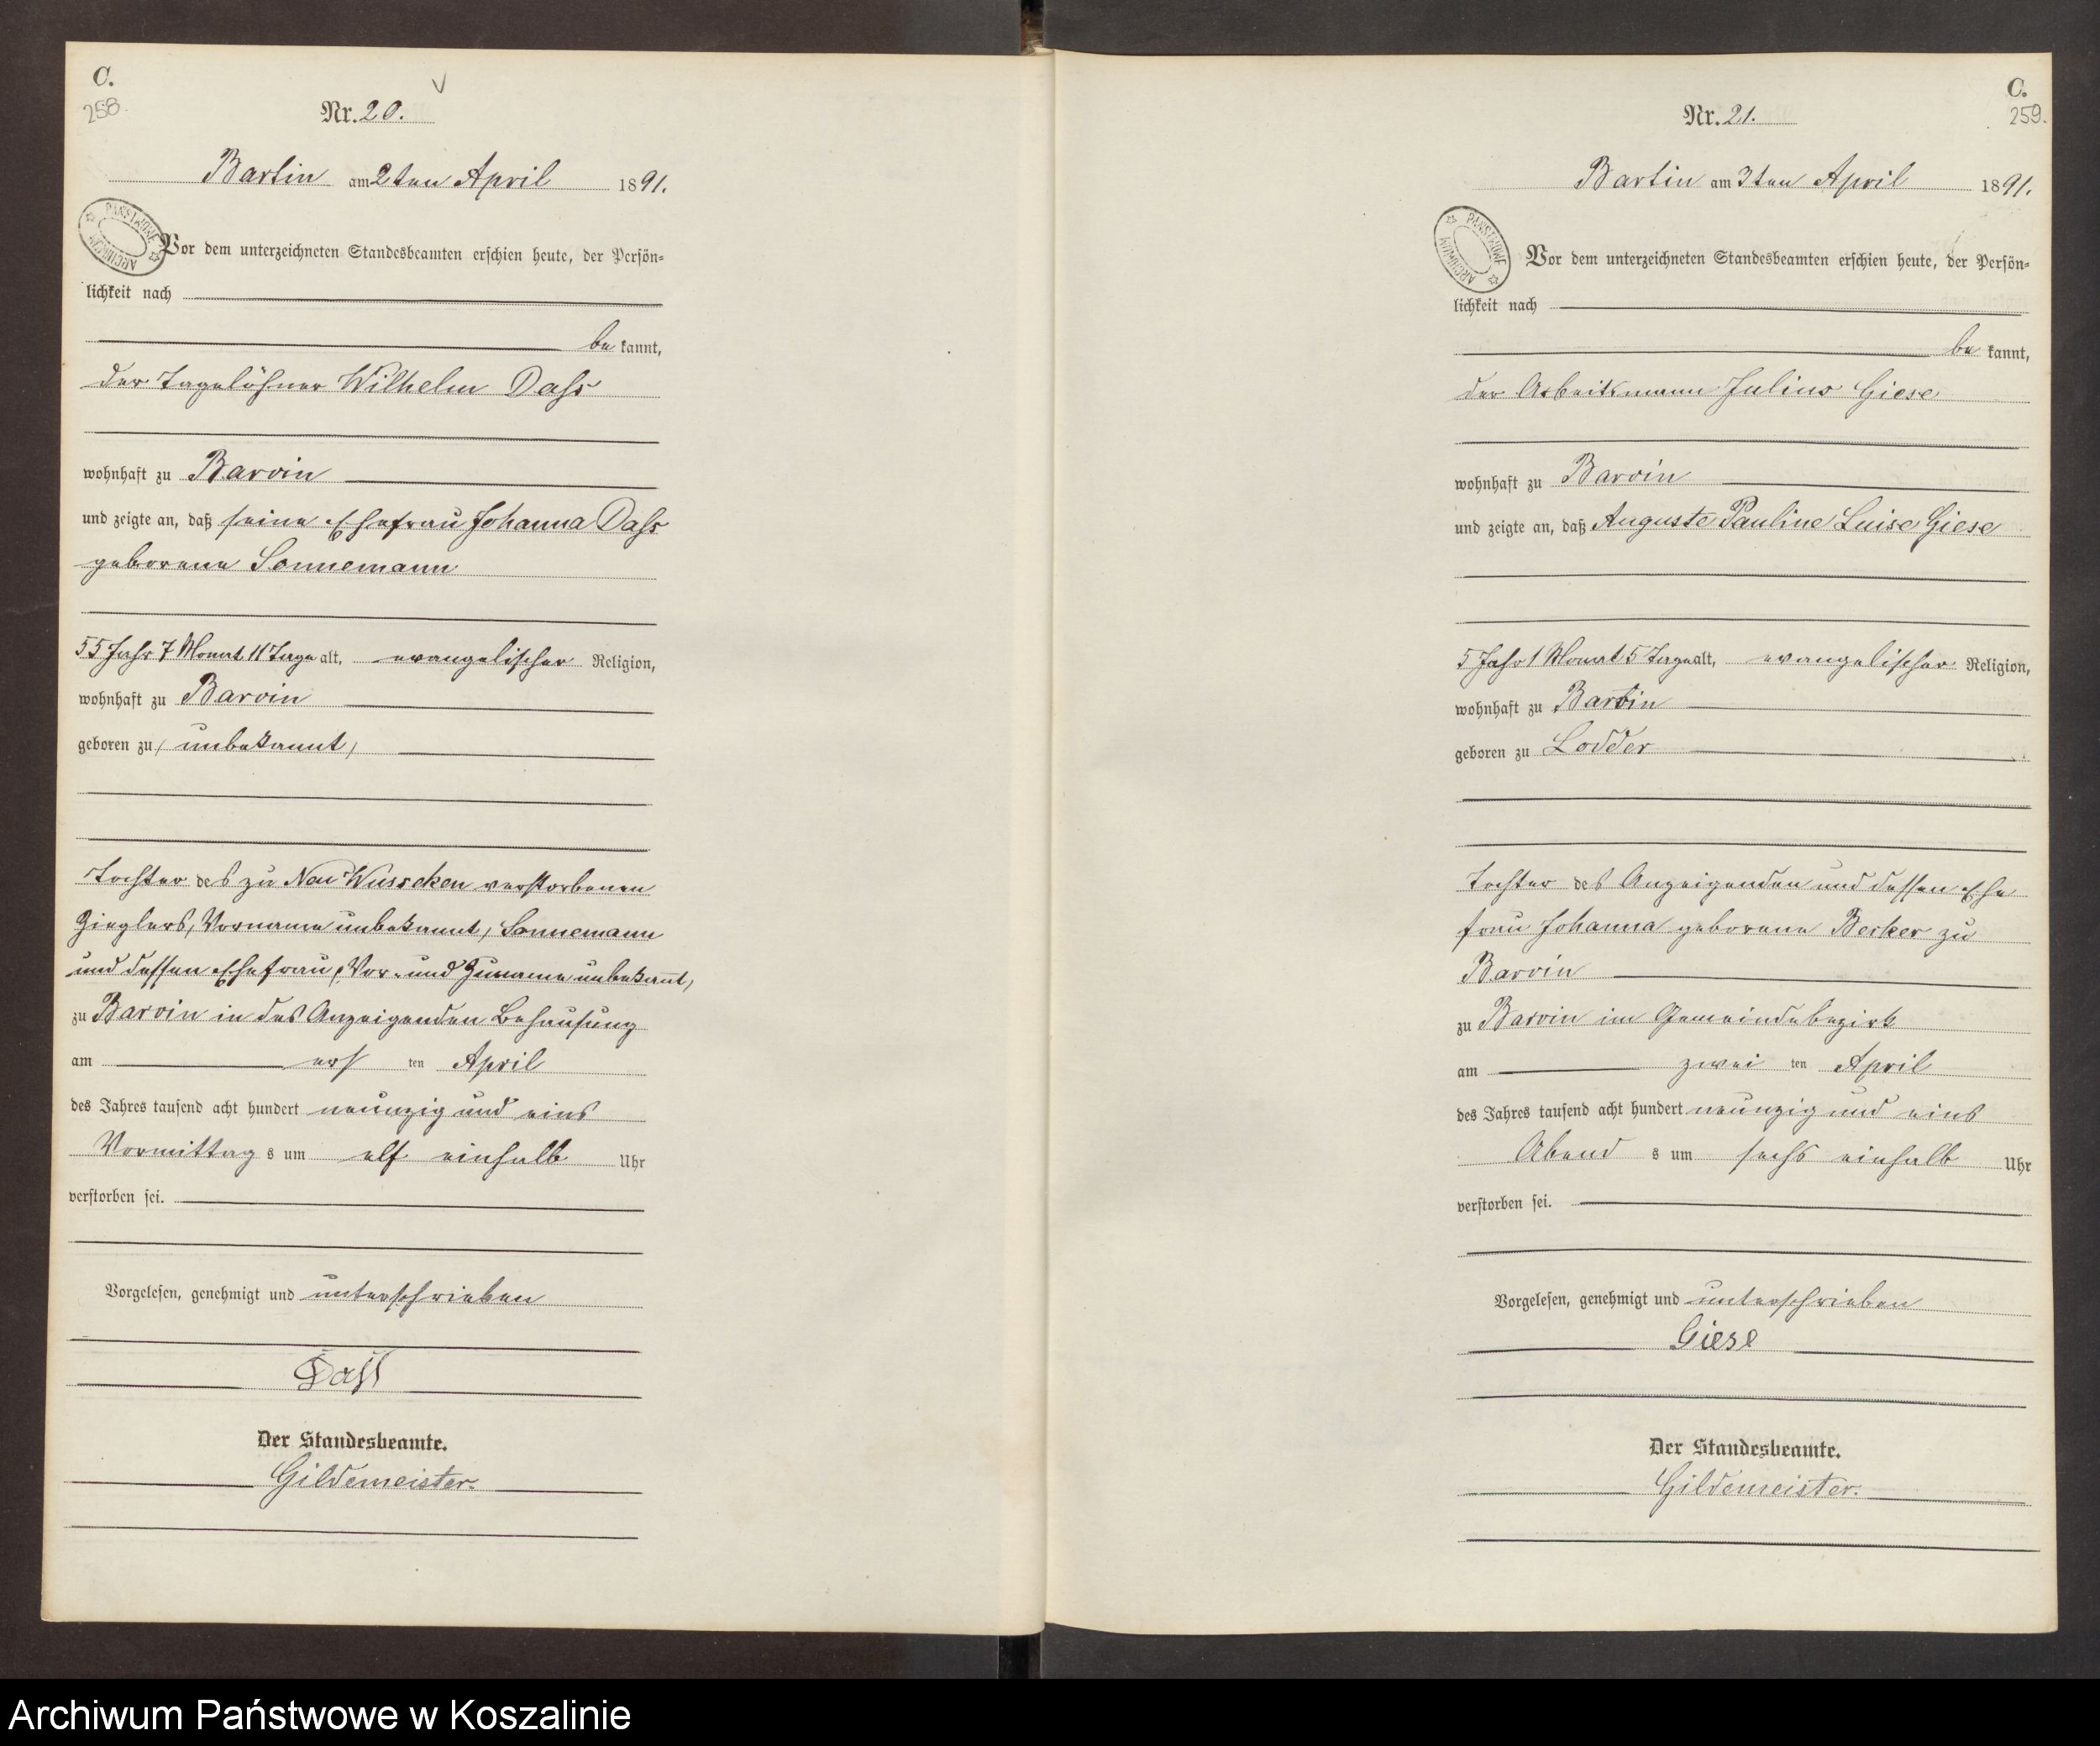 C.
258.
Nr. 20.
Bartin am 2ten April 1891.
PANSTWOWE ARCHIWUM
Vor dem unterzeichneten Standesbeamten erschien heute, der Persön-
lichkeit nach
be kannt,
der Tagelöhner Wilhelm Dahs
wohnhaft zu Barvin
und zeigte an, daß seine Ehefrau Johanna Dahs
geborene Sonnemann
55 Jahr 7 Monat 11 Tage alt, evangelischer Religion,
wohnhaft zu Barvin
geboren zu, unbekannt,
Tochter des zu Neu Wusseken verstorbenen
Zieglers, Vorname unbekannt, Sonnemann
und dessen Ehefrau, Vor- und Zuname unbekannt,
zu Barvin in des Anzeigenden Behausung
am erst ten April
des Jahres tausend acht hundert neunzig und eins
Vormittag s um elf einhalb Uhr
verstorben sei.
Vorgelesen, genehmigt und unterschrieben
Dahs
Der Standesbeamte.
Gildemeister.
C.
259.
Nr. 21.
Bartin am 3ten April 1891.
PANSTWOWE ARCHIWUM
Vor dem unterzeichneten Standesbeamten erschien heute, der Persön-
lichkeit nach
be kannt,
der Arbeitsmann Julius Giese
wohnhaft zu Barvin
und zeigte an, daß Auguste Pauline Luise Giese
5 Jahr 1 Monat 5 Tage alt, evangelischer Religion,
wohnhaft zu Barvin
geboren zu Lodder
Tochter des Anzeigenden und dessen Ehe
frau Johanna geborene Becker zu
Barvin
zu Barvin im Gemeindebezirk
am zwei ten April
des Jahres tausend acht hundert neunzig und eins
Abend s um sechs einhalb Uhr
verstorben sei.
Vorgelesen, genehmigt und unterschrieben
Giese
Der Standesbeamte.
Gildemeister.
Archiwum Państwowe w Koszalinie